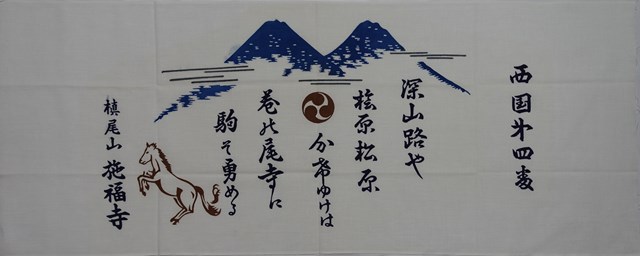 西国第四番
深山路や
檜原松原
分希ゆけは
巻の尾寺に
駒そ勇める
槙尾山 施福寺